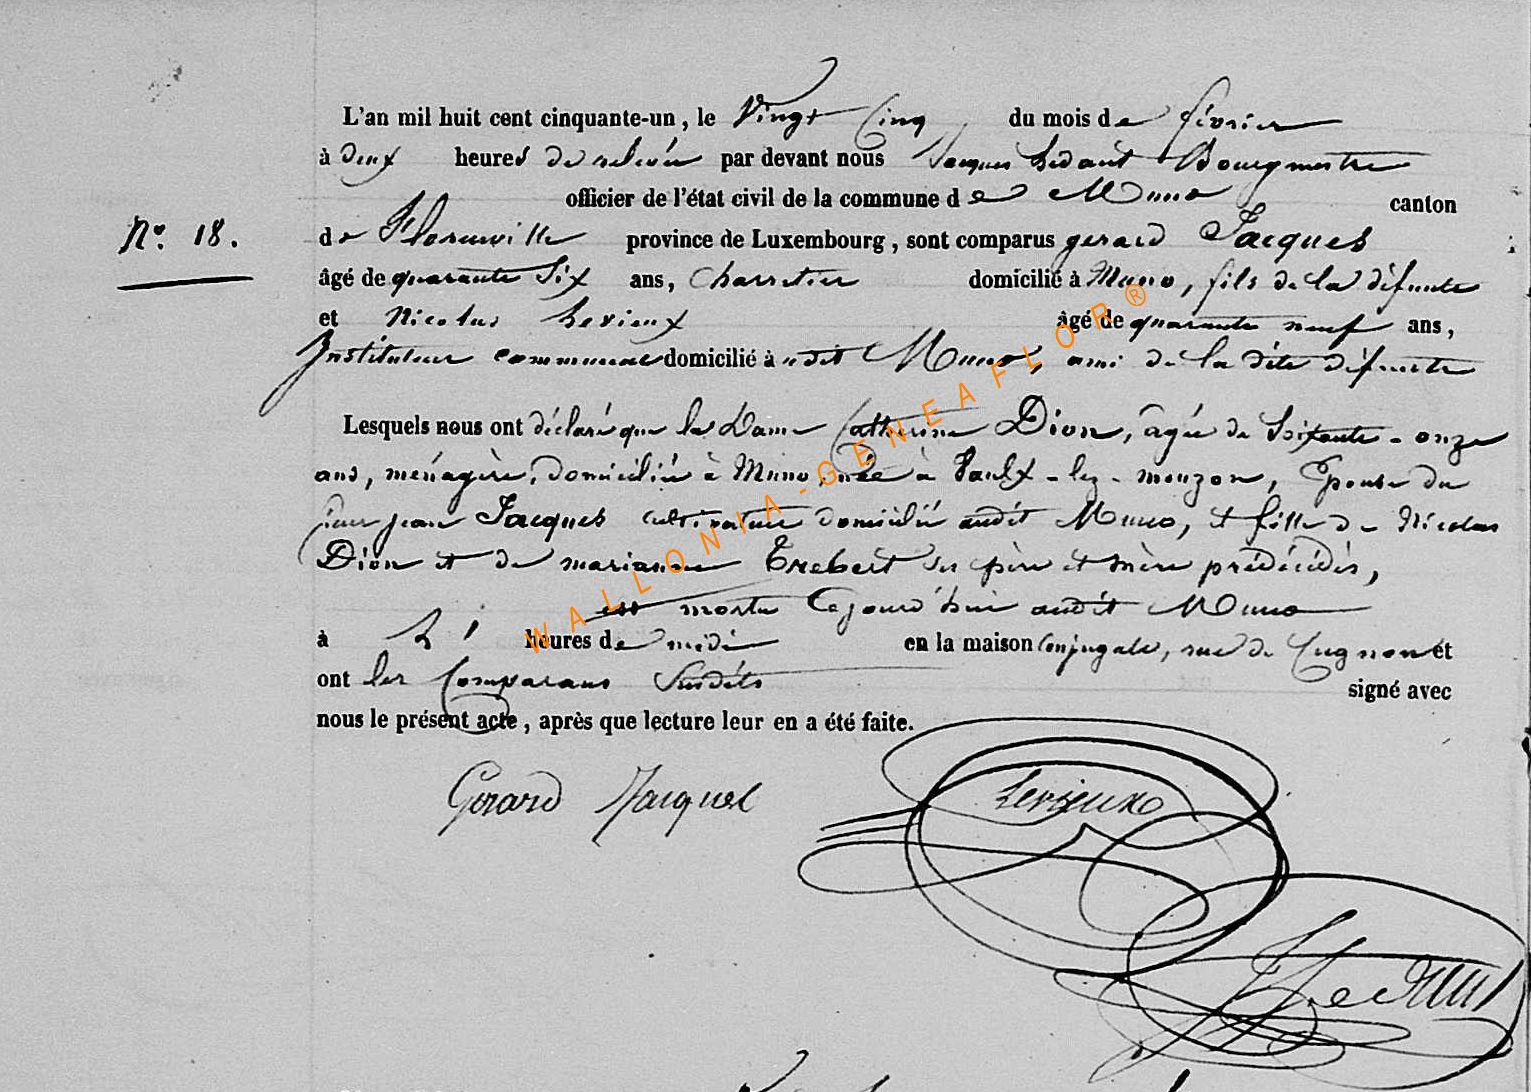 L'an mil huit cent cinquante-un, le Vingt Cinq du mois de février
à deux heures de relevée par devant nous Jacques Bourgmestre
officier de l'état civil de la commune de Muno canton
N°. 18. de Florenville province de Luxembourg, sont comparus gerard Jacques
âgé de quarante Six ans, Charretier domicilié à Muno, fils de la défunte
et Nicolas Lerieux âgé de quarante neuf ans,
Instituteur communal domicilié à udit Muno, ami de la dite défunte
Lesquels nous ont déclaré que la Dame Catherine Dion, âgée de Soixante-onze
ans, ménagère, domiciliée à Muno, née à Vaulx-lez-mouzon, Epouse du
sieur jean Jacques cultivateur domicilié audit Muno, et fille de Nicolas
Dion et de marianne Trebert ses père et mère prédécédés,
est morte Cejourd'hui audit Muno
à heures de midi en la maison Conjugale, rue de Cugnon et
ont les Comparans Susdits signé avec
nous le présent acte, après que lecture leur en a été faite.
Gerard Jacques Lerieux
WALLONIA-GENEAFLOR®